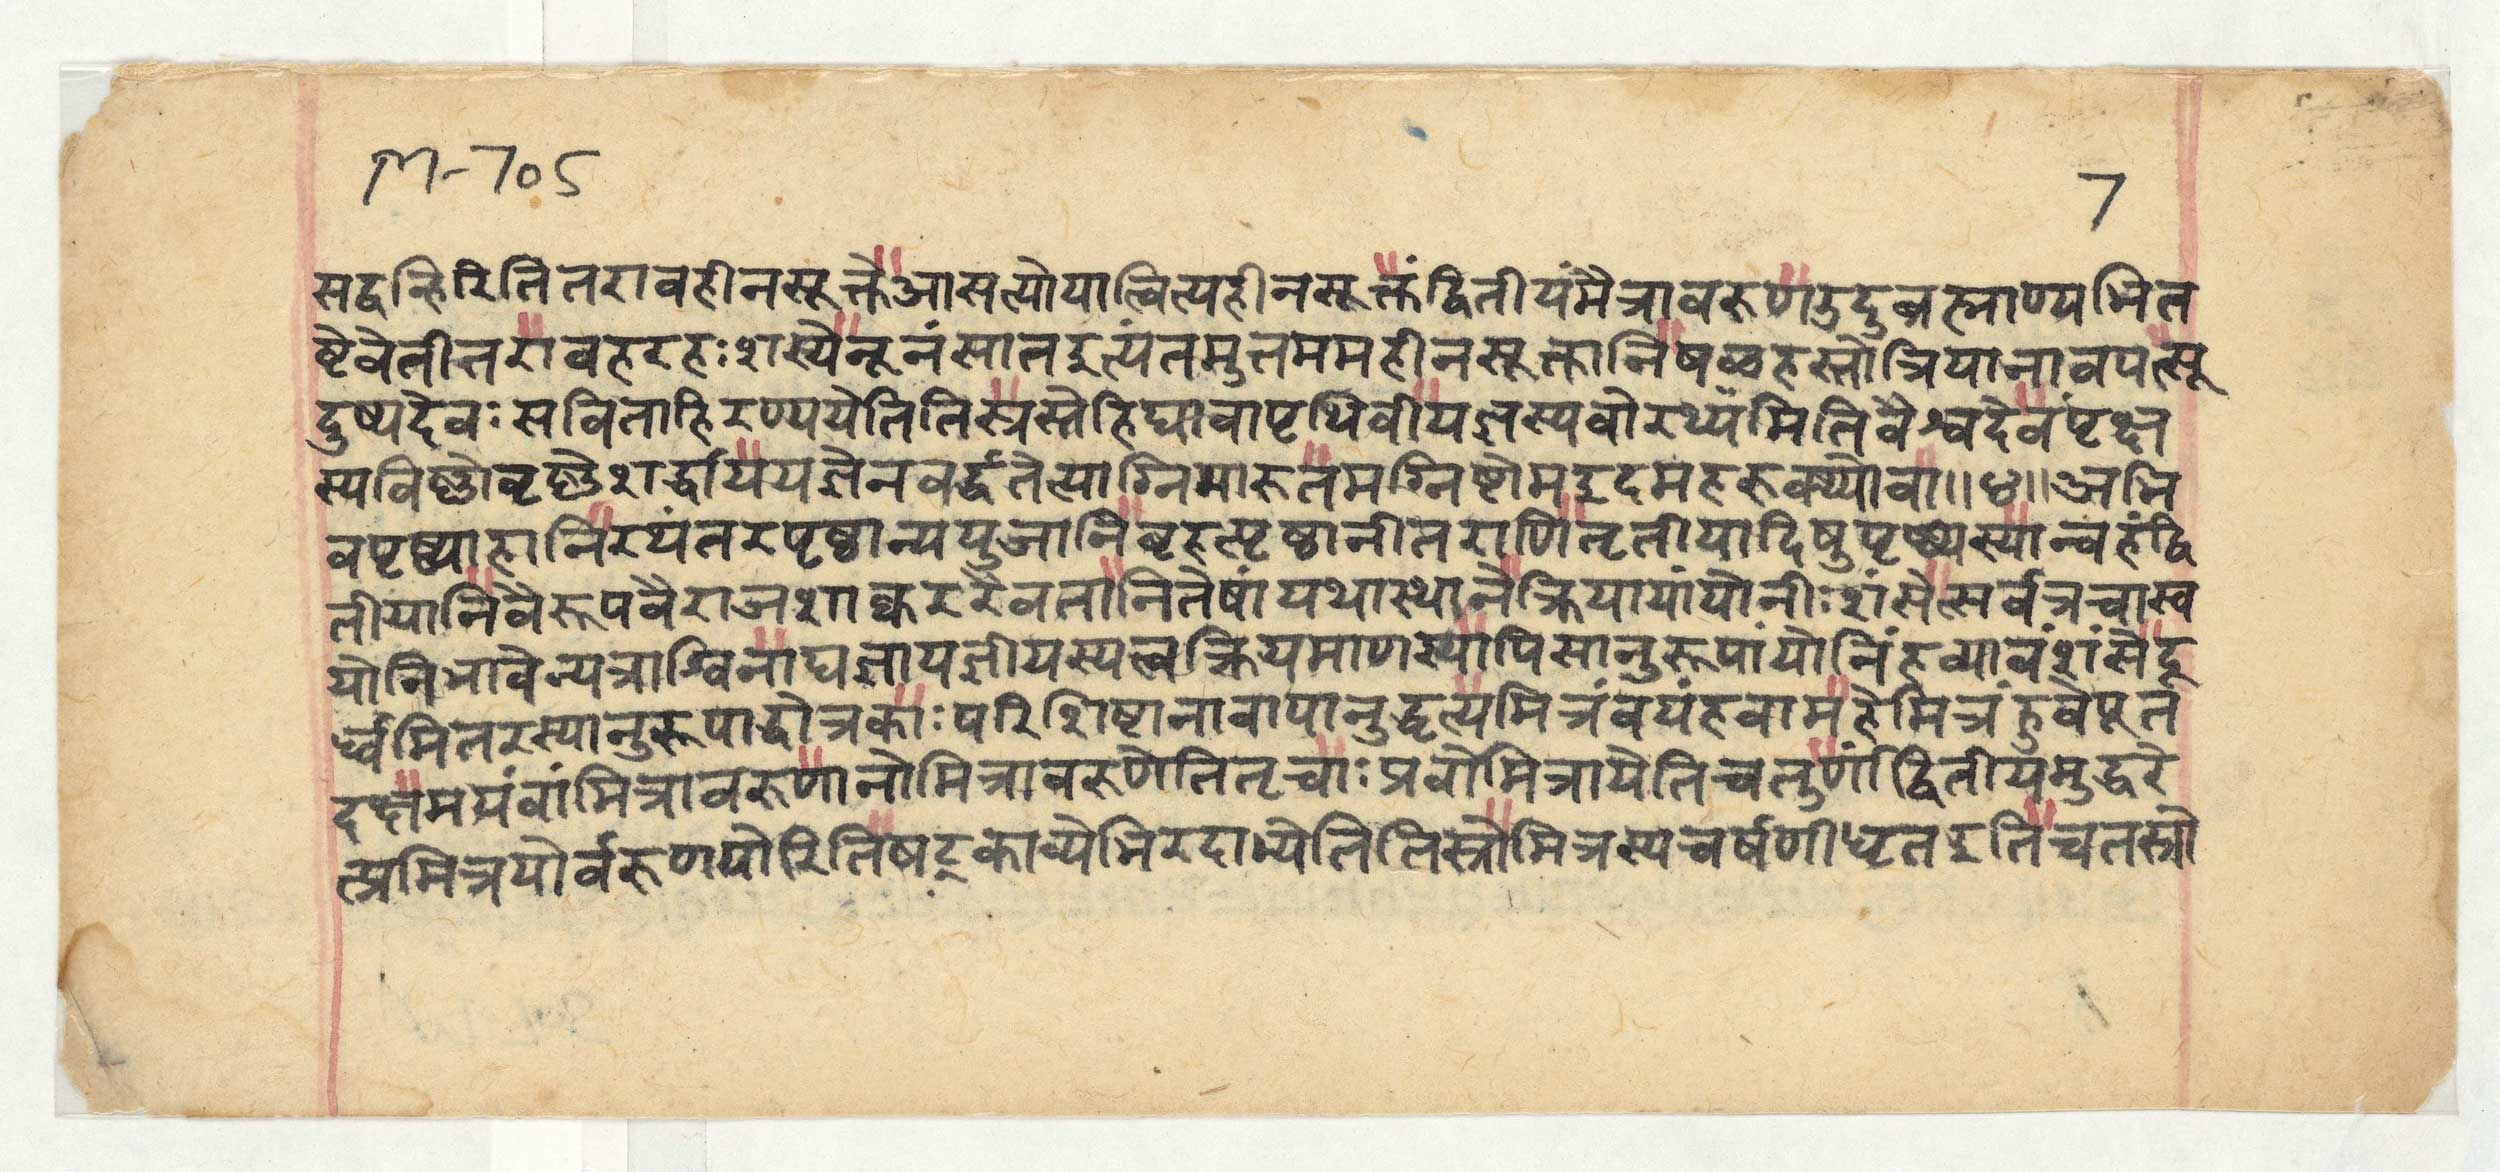 M-705
7
सद्वन्हिरितितरावहीनसूक्तेआसत्योयात्वित्यहीनसूक्तंद्वितीयंमैत्रावरूणदुदुब्रह्माण्यभित
ष्टेवेतीतरावहरहःशस्येनूनंसातइत्यंतमुत्तममहीनसूक्तानिषळहस्तोत्रियानावपत्सू
दुष्यदेवःसविताहिरण्ययेतितिस्त्रस्तेहिघावापृथिवीयज्ञस्यवोरथ्यमितिवैश्वदेवंपृक्ष
स्यविष्णोवृष्णेशर्द्धाययज्ञेनवर्द्धतेत्याग्निमारूतमग्निष्टोमइदमहरूक्थ्योवा॥४॥अभि
वपृष्ठ्याहानिरथंतरपृष्ठान्ययुजानिबृहत्पृष्ठानीतराणितृतीयादिषुपृष्ठ्यस्यान्वहंद्वि
तीयानिवैरूपवैराजशाक्वररैवतानितेषांयथास्थानेक्रियायांयोनीःशंसेत्सर्वत्रचास्व
योनिभावेन्यत्राश्विनाघज्ञायज्ञीयस्यत्वक्रियमाणस्यापिसानुरूपांयोनिंहव्यावंशंसेदू
र्ध्वमितरस्यानुरूपाद्धोत्रकाःपरिशिष्टानावापानुद्धृत्यमित्रंवयंहवामहेमित्रंहुवेपूत
दक्षमयंवांमित्रावरूणानोमित्रावरूणेतितृचाःप्रवोमित्रायेतिचतुर्णांद्वितीयमुद्धरे
त्प्रमित्रयोर्वरूणयोरितिषट्काव्येभिरदाभ्येतितिस्त्रोमित्रस्यचर्षणीधृतइतिचतस्त्रो